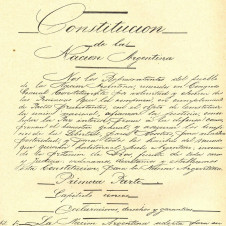 Constitucion
de la
Nacion Argentina
Nos los Representantes del pueblo
de la Nacion Argentina, reunidos en Congreso
General Constituyente por voluntad y eleccion
de las Provincias que la componen, en cumplimiento
de Pactos preexistentes, con el objeto de constituir
la union nacional, afianzar la justicia,
la paz interior, proveer á la defensa comun,
promover el bienestar general, y asegurar los beneficios
de la libertad, para nosotros, para nuestra
posteridad y para todos los hombres del mundo
que quieran habitar en el suelo Argentino: invocando
la proteccion de Dios, fuente de toda razon
y justicia: ordenamos, decretamos y establecemos
esta Constitucion para la Nacion Argentina.
Primera Parte
Capitulo
Declaraciones, derechos y garantias
La Nacion Argentina adopta para su